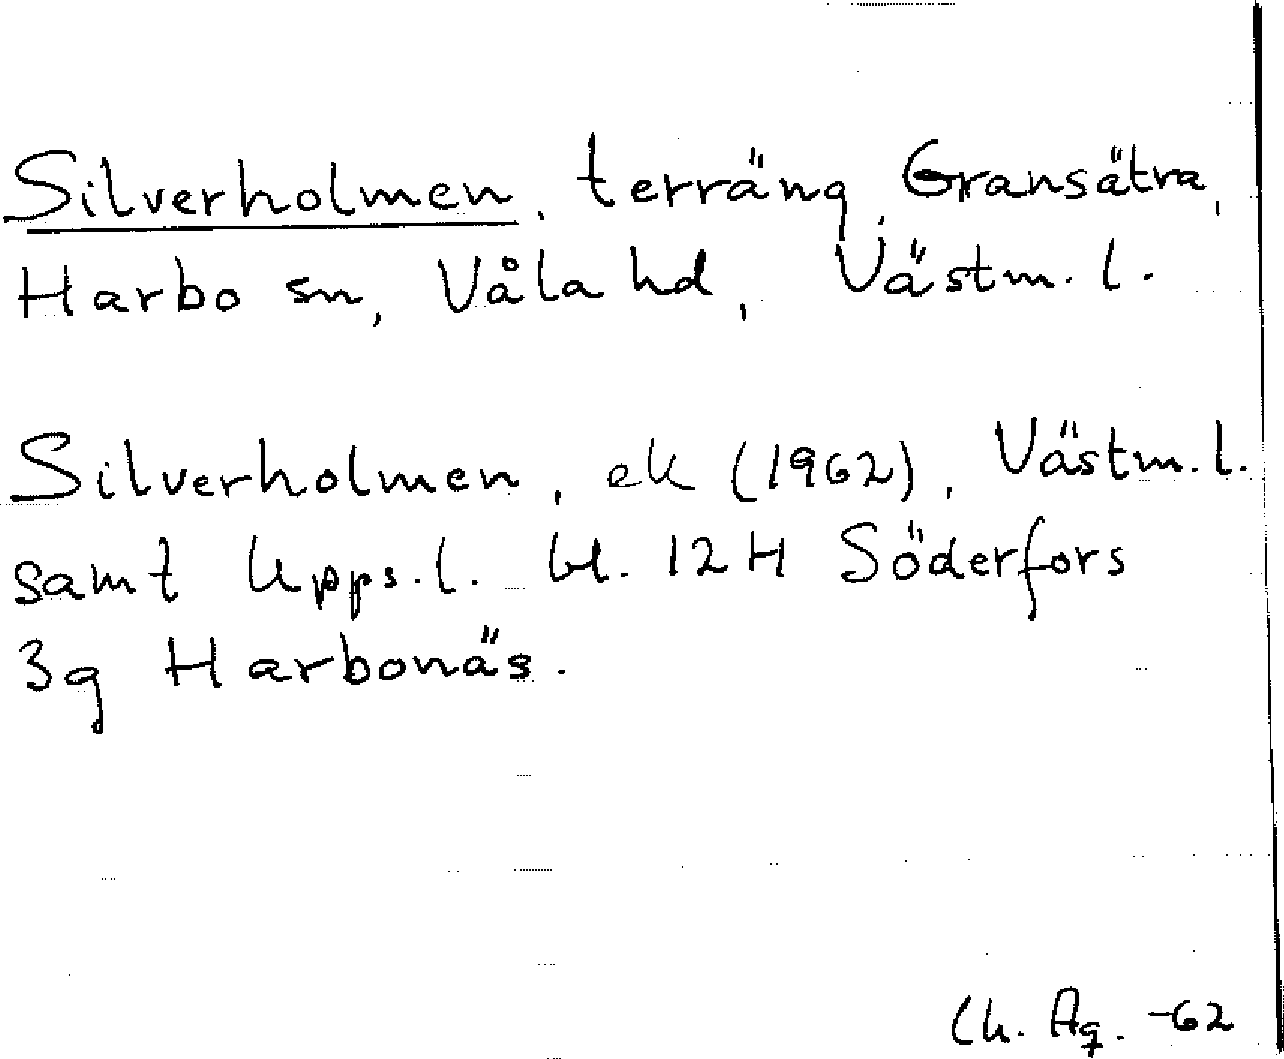 Silverholmen, terräng, Gransätra,
Harbo sn, Våla hd, Västm. l.
Silverholmen, ek (1962), Västm. l.
samt Upps. l. bl. 12H Söderfors
3g Harbonäs.
Ch. Ag. -62